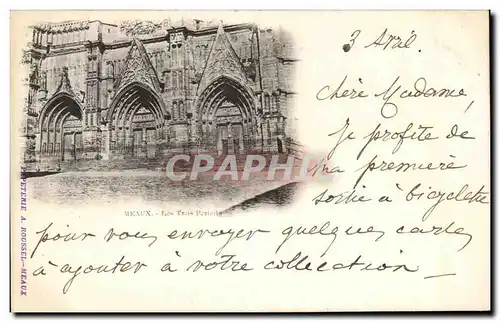 MEAUX. - Les Trois Portails
PAPETERIE A. ROUSSEL-MEAUX
CPARAMA.COM
3 Avril.
Chère Madame,
Je profite de
ma première
sortie à bicyclette
pour vous envoyer quelques cartes
à ajouter à votre collection -